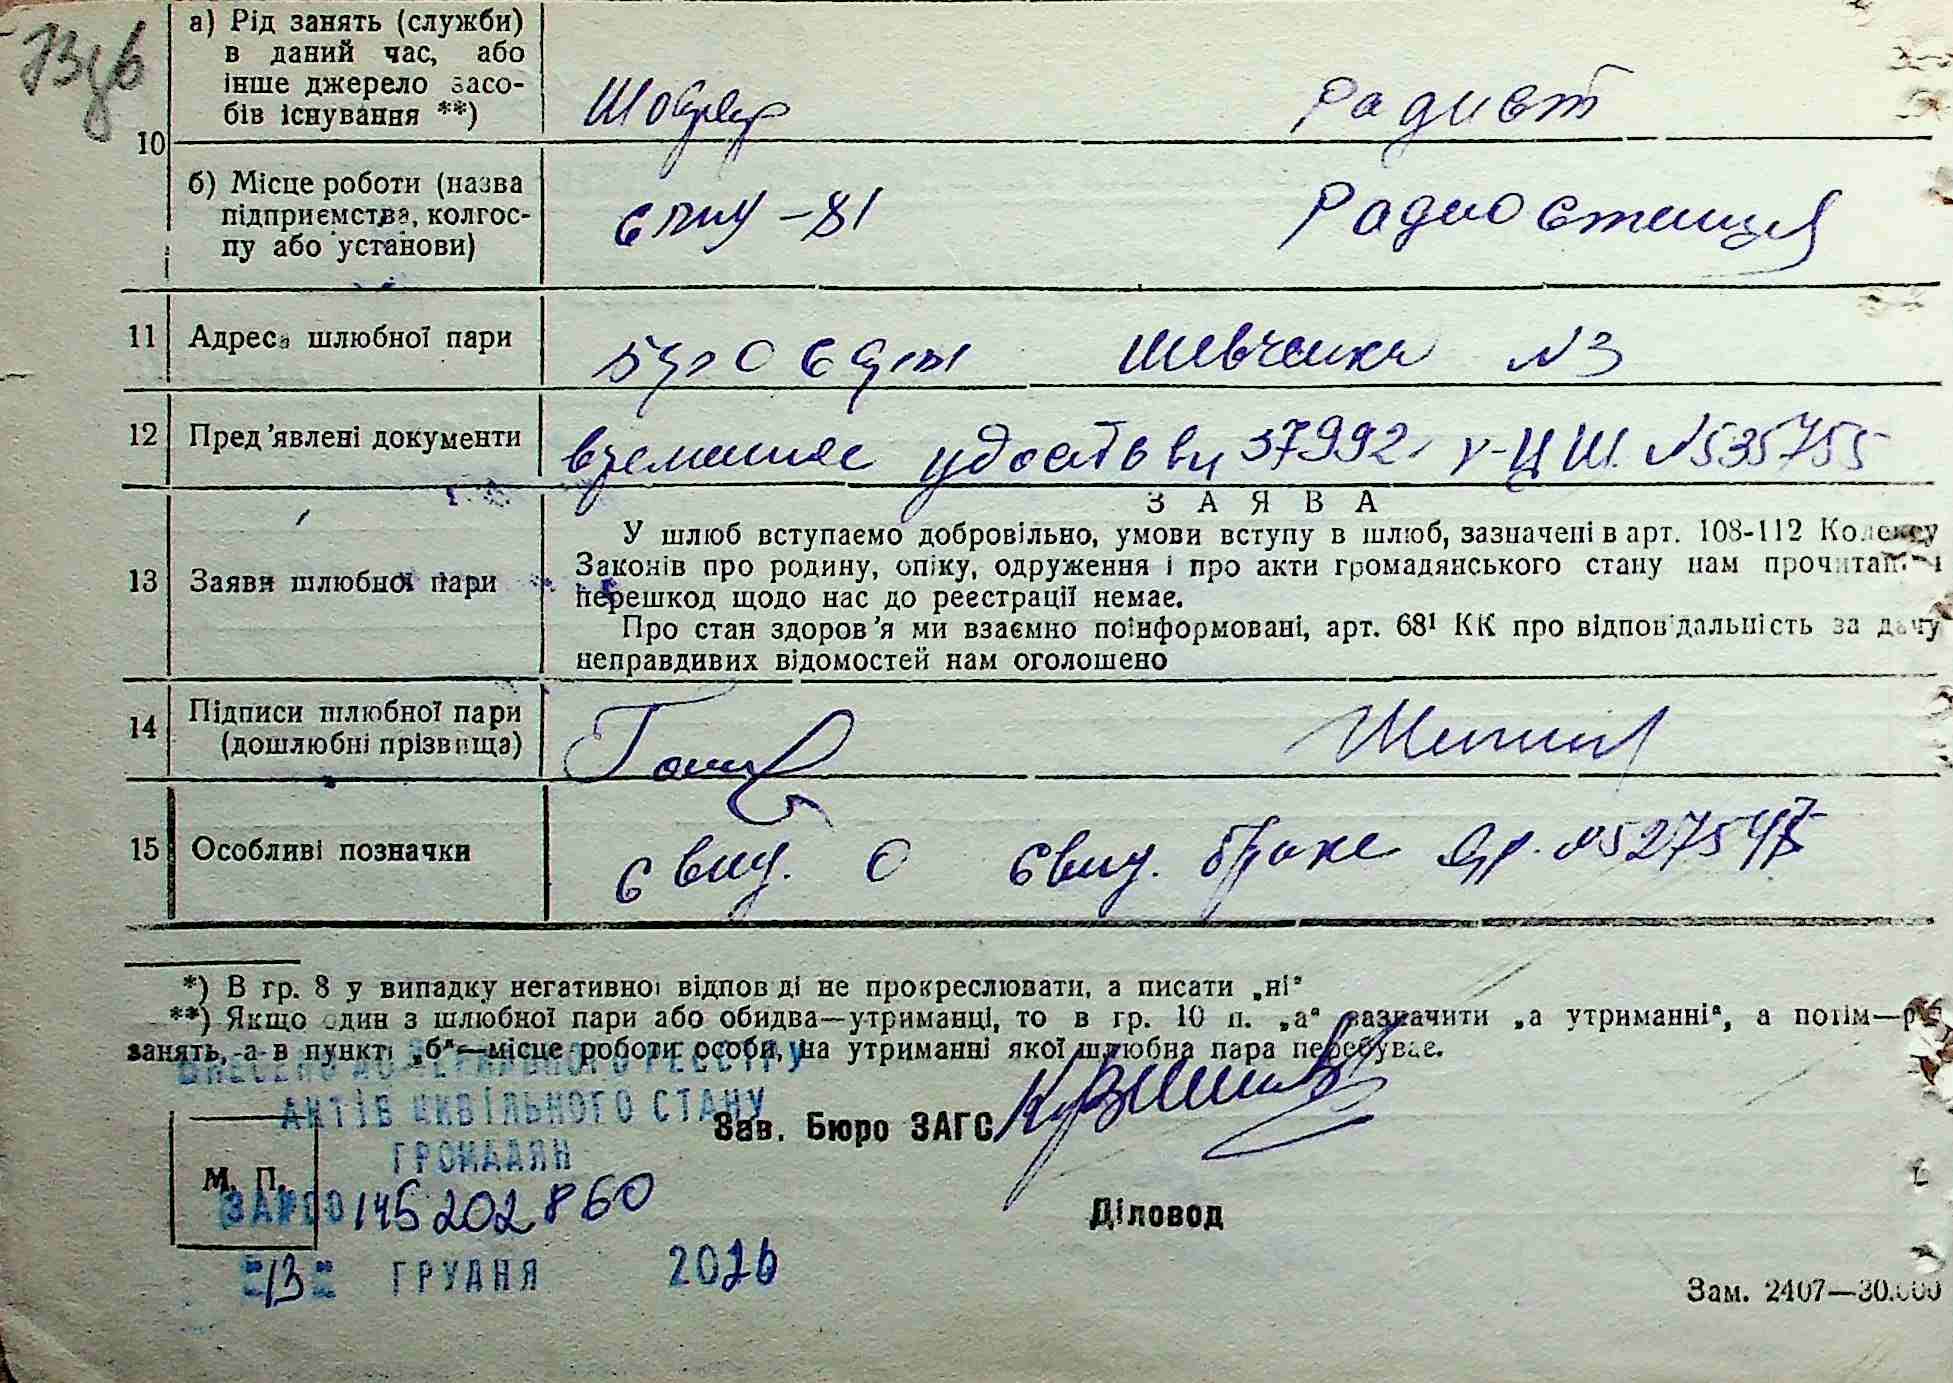 а) Рід занять (служби)
в даний час, або
інше джерело засо-
бів існування **)
Шофер Радист
10
б) Місце роботи (назва
підприємства, колгос-
пу або установи)
Радиостанция
11 Адреса шлюбної пари
Шевченка №3
12 Пред'явлені документи
временное удоств 37992 У-ЦШ №535755
ЗАЯВА
13 Заяви шлюбної пари
У шлюб вступаємо добровільно, умови вступу в шлюб, зазначені в арт. 108-112 Кодексу
Законів про родину, опіку, одруження і про акти громадянського стану нам прочитані і
перешкод щодо нас до реєстрації немає.
Про стан здоров'я ми взаємно поінформовані, арт. 68¹ КК про відповідальність за дачу
неправдивих відомостей нам оголошено
14 Підписи шлюбної пари
(дошлюбні прізвища)
15 Особливі позначки
о браке
*) В гр. 8 у випадку негативної відповіді не прокреслювати, а писати „ні“
**) Якщо один з шлюбної пари або обидва—утриманці, то в гр. 10 п. „а“ зазначити „а утриманні“, а потім—р
занять, а в пункті „б“—місце роботи особи, на утриманні якої шлюбна пара перебуває.
ВНЕСЕНО ДО ДЕРЖАВНОГО РЕЄСТРУ
АКТІВ ЦИВІЛЬНОГО СТАНУ
ГРОМАДЯН
Зав. Бюро ЗАГС
М. П.
145202860
Діловод
13 ГРУДНЯ
Зам. 2407—30.000